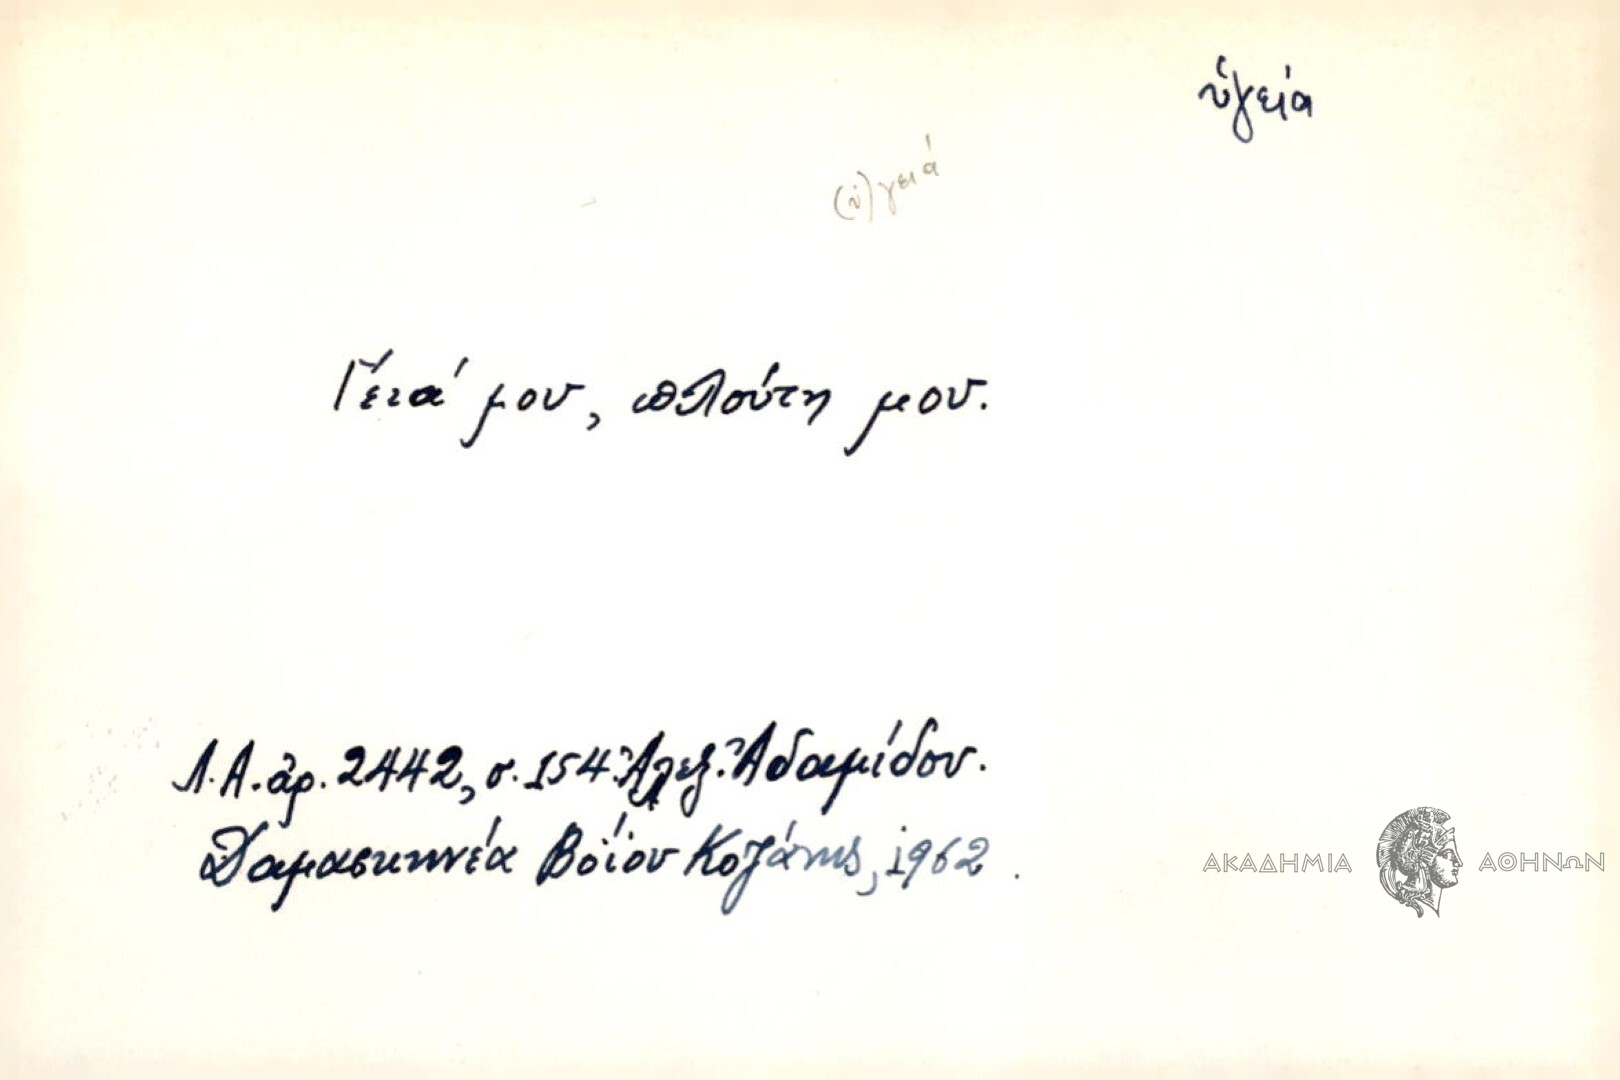 ὑγεία
(ὑ)γειά
Γειά μου, πλούτη μου.
Λ.Α. ἀρ. 2442, σ. 154. Ἀλεξ. Ἀδαμίδου.
Δαμασκηνέα Βοΐου Κοζάνης, 1962.
ΑΚΑΔΗΜΙΑ ΑΘΗΝΩΝ